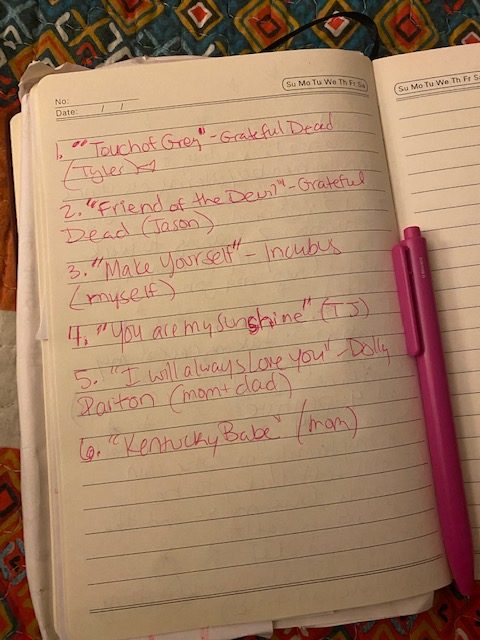 Su Mo Tu We Th Fr Sa
Su Mo Tu We Th Fr Sa
No:
Date: / /
1. "Touch of Grey" - Grateful Dead
(Tyler)
2. "Friend of the Devil" - Grateful
Dead (Jason)
3. "Make Yourself" - Incubus
(myself)
4. "You are my Sunshine" (TJ)
5. "I will always Love you" - Dolly
Parton (mom + dad)
6. "Kentucky Babe" (mom)